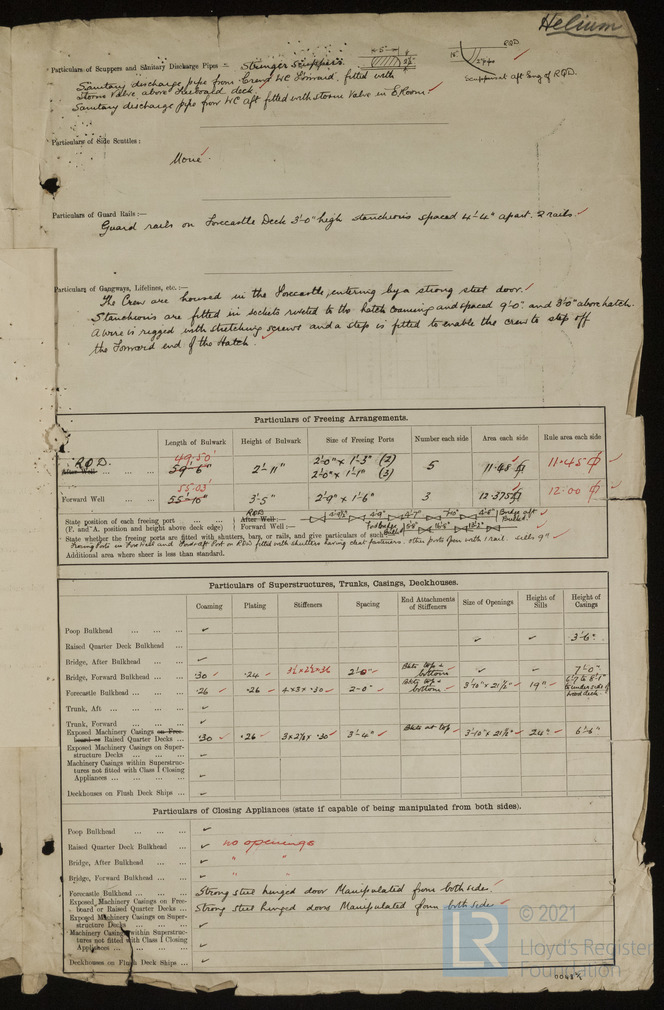 Helium
Particulars of Scuppers and Sanitary Discharge Pipes — Stringer Scuppers
Sanitary discharge pipe from Crew's WC Forward, fitted with
Storm Valve above Freeboard deck.
Sanitary discharge pipe from WC aft fitted with storm Valve in E. Room.
RQD
Scupper at aft End of RQD.
Particulars of Side Scuttles:
None
Particulars of Guard Rails:—
Guard rails on Forecastle Deck 3'-0" high stanchions spaced 4'-4" apart. 2 rails.
Particulars of Gangways, Lifelines, etc.:—
The Crew are housed in the Forecastle, entering by a strong steel door.
Stanchions are fitted in sockets riveted to the hatch coaming and spaced 9'-0" and 3'-0" above hatch.
A wire is rigged with stretching screws and a step is fitted to enable the crew to step off
the Forward end of the Hatch.
Particulars of Freeing Arrangements.
Length of Bulwark Height of Bulwark Size of Freeing Ports Number each side Area each side Rule area each side
RQD. 49.50'
After Well 59'-6" 2'-11" 2'-0" x 1'-3" (2) 5 11.48 11.45
2'-0" x 1'-1" (3)
55.83'
Forward Well 55'-10" 3'-5" 2'-9" x 1'-6" 3 12.375 12.00
State position of each freeing port RQD After Well:— Bridge aft Bulkd
(F. and A. position and height above deck edge) Forward Well:—
State whether the freeing ports are fitted with shutters, bars, or rails, and give particulars of such
Freeing Ports in For'd Well and For'd & Aft Port on RQD fitted with shutters having cleat fasteners. Other ports open with 1 rail. Sills 9"
Additional area where sheer is less than standard.
Particulars of Superstructures, Trunks, Casings, Deckhouses.
Coaming Plating Stiffeners Spacing End Attachments of Stiffeners Size of Openings Height of Sills Height of Casings
Poop Bulkhead
Raised Quarter Deck Bulkhead 3'-6"
Bridge, After Bulkhead
Bridge, Forward Bulkhead .30 .24 2'-0" Bkts top & bottom 7'-0"
Forecastle Bulkhead .26 .26 4 x 3 x .30 2'-0" Bkts top & bottom 3'-10" x 21½" 19" to underside of wood deck
Trunk, Aft
Trunk, Forward
Exposed Machinery Casings on Free-
board or Raised Quarter Decks .30 .26 3 x 2½ x .30 3'-4" Bkts at top 3'-10" x 21½" 24" 6'-6"
Exposed Machinery Casings on Super-
structure Decks
Machinery Casings within Superstruc-
tures not fitted with Class I Closing
Appliances
Deckhouses on Flush Deck Ships
Particulars of Closing Appliances (state if capable of being manipulated from both sides).
Poop Bulkhead
Raised Quarter Deck Bulkhead no openings
Bridge, After Bulkhead " "
Bridge, Forward Bulkhead " "
Forecastle Bulkhead Strong steel hinged door Manipulated from both sides.
Exposed Machinery Casings on Free-
board or Raised Quarter Decks Strong steel hinged doors Manipulated from both sides
Exposed Machinery Casings on Super-
structure Decks
Machinery Casings within Superstruc-
tures not fitted with Class I Closing
Appliances
Deckhouses on Flush Deck Ships
LR © 2021
Lloyd's Register
Foundation